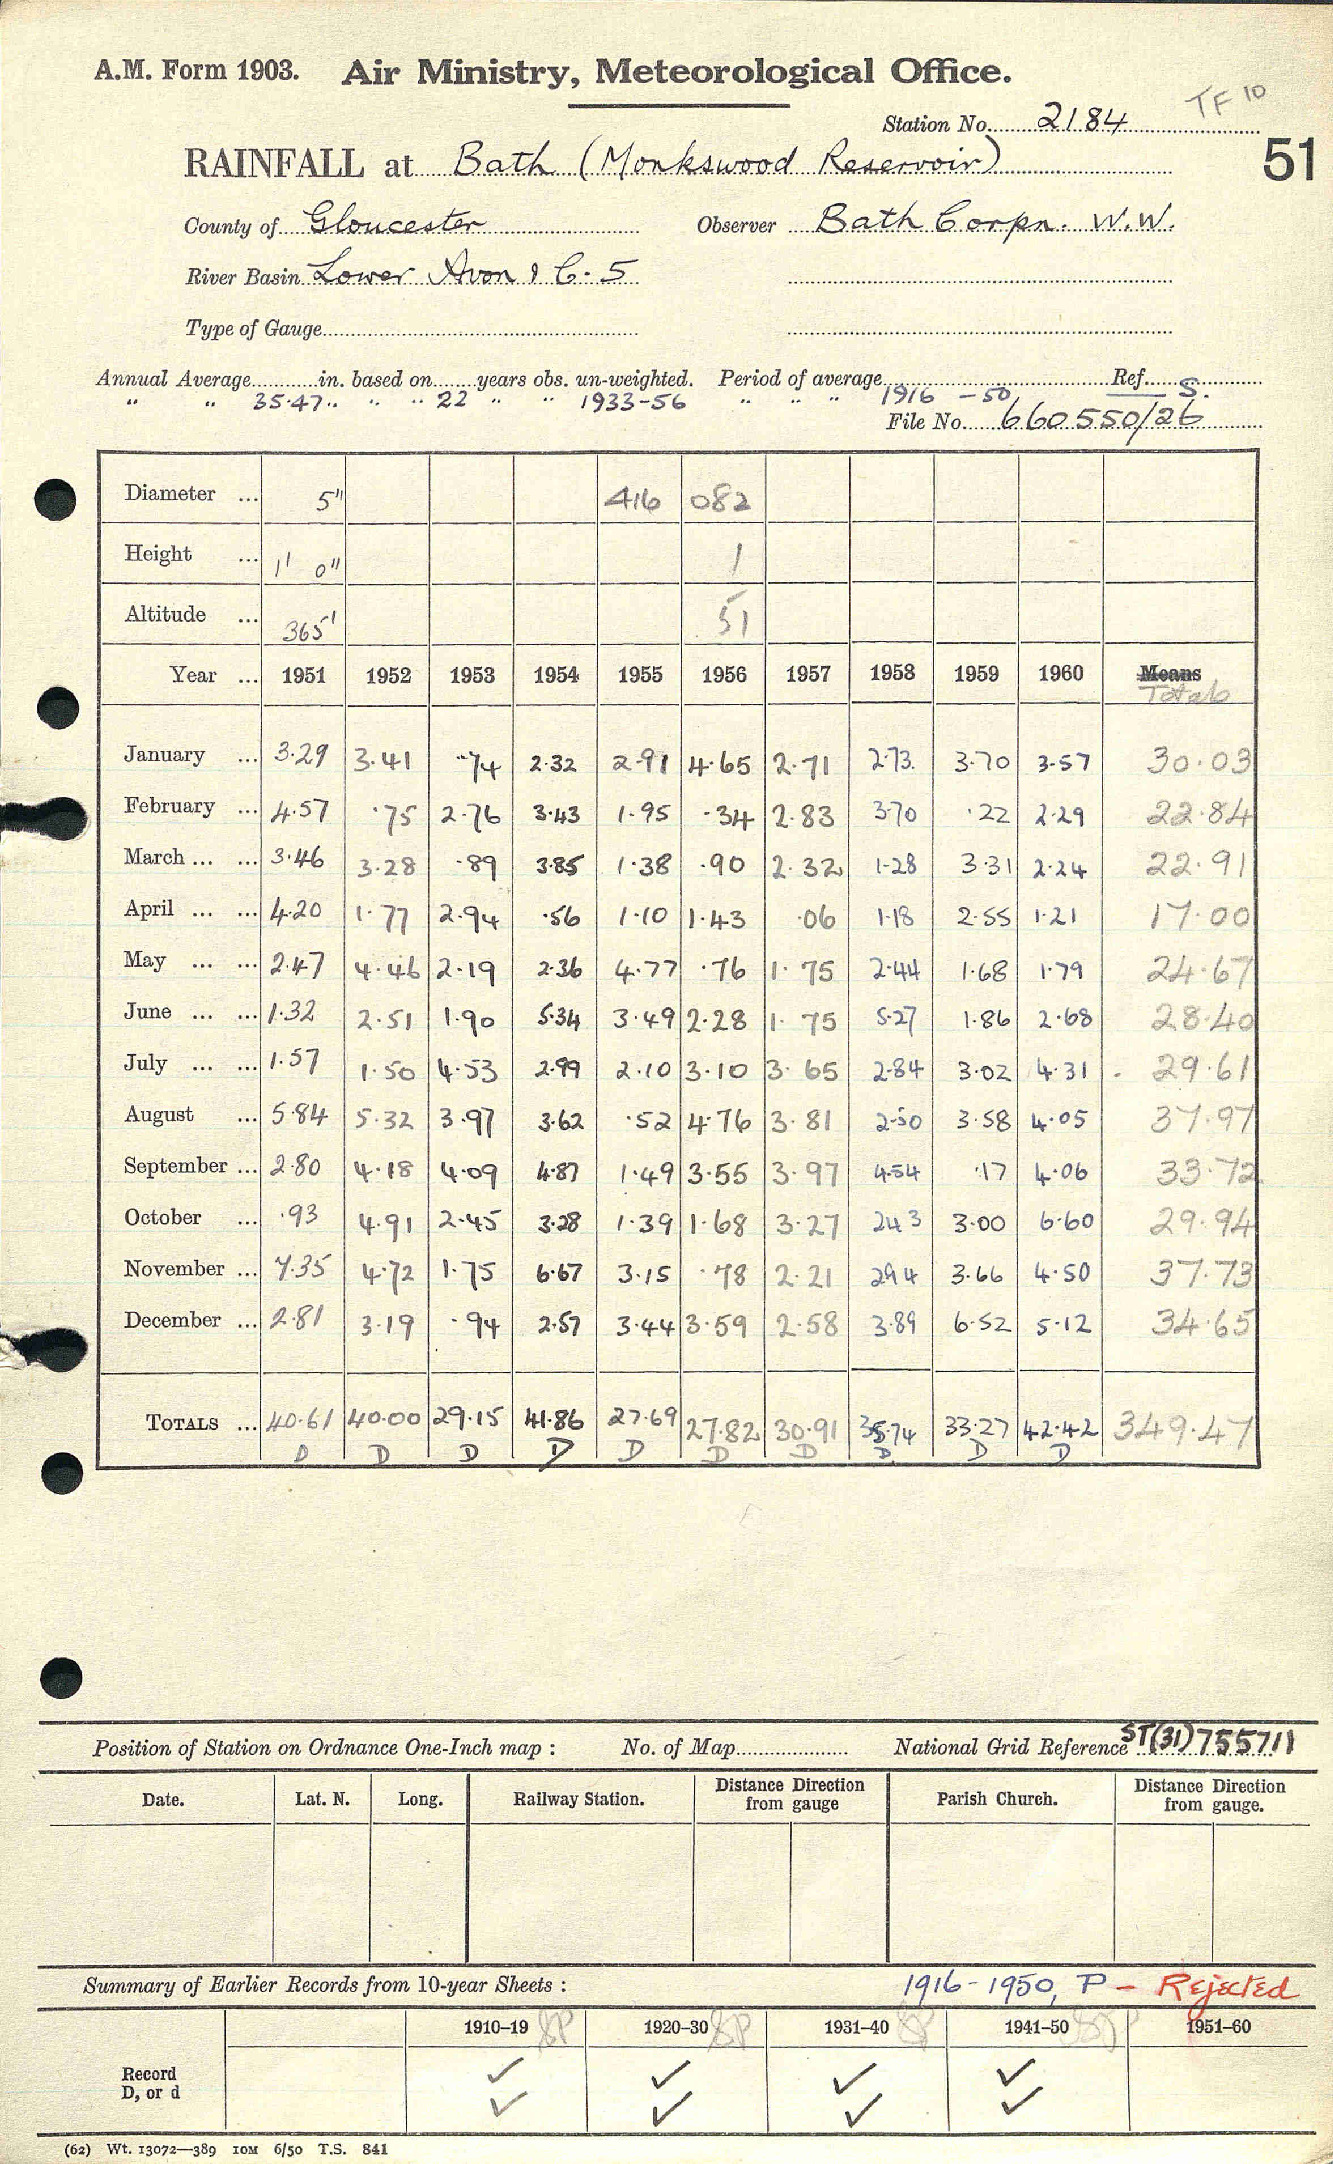 A.M. Form 1903. Air Ministry, Meteorological Office.
TF 10
Station No. 2184
51
RAINFALL at Bath (Monkswood Reservoir)
County of Gloucester Observer Bath Corpn. W.W.
River Basin Lower Avon & C.5
Type of Gauge
Annual Average in. based on years obs. un-weighted. Period of average Ref. S.
" " 35.47 " " 22 " " 1933-56 " " " 1916 - 50
File No. 660550/26
Diameter ... 5" 416 082
Height ... 1' 0" 1
Altitude ... 365' 51
Year ... 1951 1952 1953 1954 1955 1956 1957 1958 1959 1960 Means
Totals
January ... 3.29 3.41 .74 2.32 2.91 4.65 2.71 2.73 3.70 3.57 30.03
February ... 4.57 .75 2.76 3.43 1.95 .34 2.83 3.70 .22 2.29 22.84
March ... ... 3.46 3.28 .89 3.85 1.38 .90 2.32 1.28 3.31 2.24 22.91
April ... ... 4.20 1.77 2.94 .56 1.10 1.43 .06 1.18 2.55 1.21 17.00
May ... ... 2.47 4.46 2.19 2.36 4.77 .76 1.75 2.44 1.68 1.79 24.67
June ... ... 1.32 2.51 1.90 5.34 3.49 2.28 1.75 5.27 1.86 2.68 28.40
July ... ... 1.57 1.50 4.53 2.99 2.10 3.10 3.65 2.84 3.02 4.31 29.61
August ... 5.84 5.32 3.97 3.62 .52 4.76 3.81 2.50 3.58 4.05 37.97
September ... 2.80 4.18 4.09 4.87 1.49 3.55 3.97 4.54 .17 4.06 33.72
October ... .93 4.91 2.45 3.28 1.39 1.68 3.27 2.43 3.00 6.60 29.94
November ... 7.35 4.72 1.75 6.67 3.15 .78 2.21 2.94 3.66 4.50 37.73
December ... 2.81 3.19 .94 2.57 3.44 3.59 2.58 3.89 6.52 5.12 34.65
TOTALS ... 40.61 40.00 29.15 41.86 27.69 27.82 30.91 35.74 33.27 42.42 349.47
D D D D D D D D D D
Position of Station on Ordnance One-Inch map : No. of Map National Grid Reference ST(31)755711
Date. Lat. N. Long. Railway Station. Distance Direction from gauge Parish Church. Distance Direction from gauge.
Summary of Earlier Records from 10-year Sheets : 1916-1950, P - Rejected
1910–19 1920–30 1931–40 1941–50 1951–60
Record
D, or d
(62) Wt. 13072—389 10M 6/50 T.S. 841